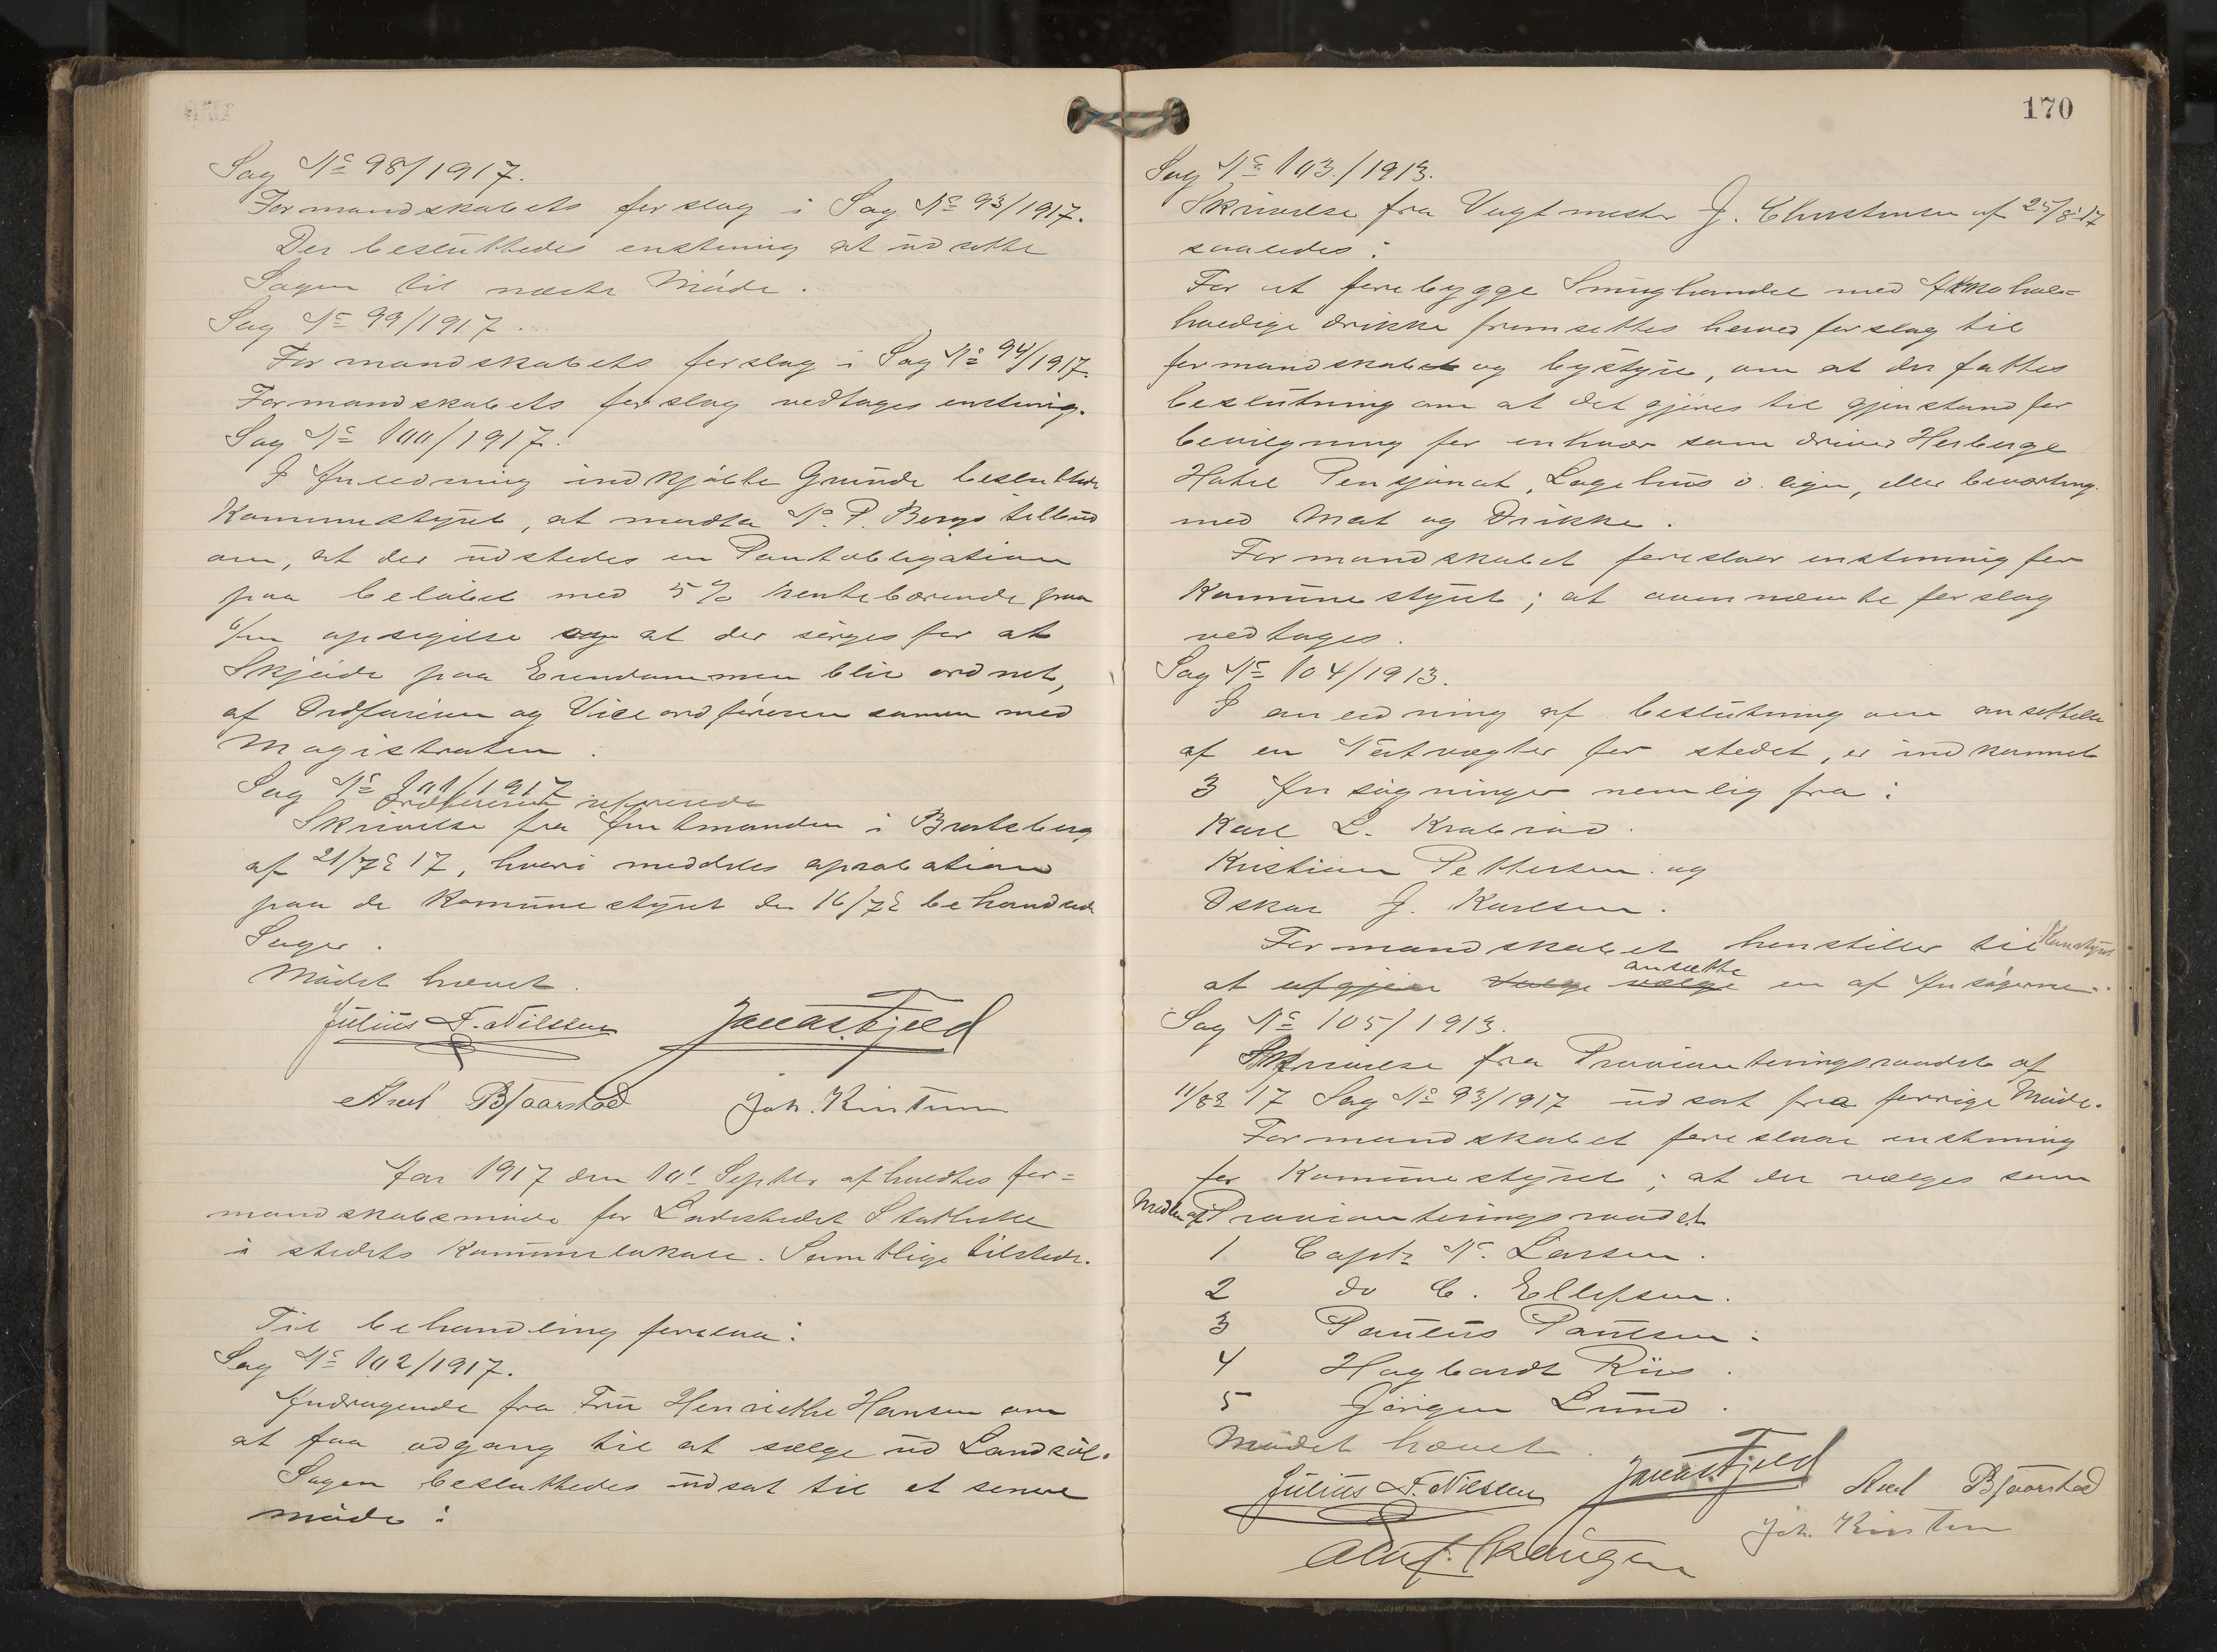 Sag No 98/1917.
Formandskabets forslag i Sag No 93/1917.
Der besluttedes enstemig at udsette
Sagen til næste Møde.
Sag No 99/1917.
Formandskabets forslag i Sag No 94/1917.
Formandskabets forslag vedtages enstemig.
Sag No 100/1917.
I Anledning indkjøbte Grunde besluttede
Kommunestyret, at modta N. P. Bergs tilbud
om, at der udstedes en Pantobligation
paa beløbet med 5 % rentebærende paa
6/m opsigelse og at der sørges for at
Skjøde paa Eiendommen blir ordnet,
af Ordføreren og Viceordføreren samen med
Magistraten.
Sag No 101/1917
Ordføreren refererede
Skrivelse fra Amtmanden i Bratsberg
af 21/7 17, hvori meddeles aprobation
paa de Kommunestyret den 16/7 behandlede
Sager.
Mødet hævet.
Julius F. Nilssen Jonas Fjeld
Axel B Faarstad Joh. Kirstum
Aar 1917 den 10' Septbr afholdtes for=
mandskabsmøde for Ladestedet Stathelle
i stedets Kommunelokale. Samtlige tilstede.
Til behandling forelaa:
Sag No 102/1917.
Andragende fra Fru Henriette Hansen om
at faa adgang til at sælge ud Landsøl.
Sagen besluttedes udsat til et senere
møde:
170
Sag No 103/1913.
Skrivelse fra Vagtmester J. Christensen af 25/8 17
saaledes:
For at forebygge Smughandel med Alkohol=
holdige drikke fremsettes herved forslag til
formandskabet og bystyre, om at der fattes
beslutning om at det gjøres til gjenstand for
bevilgning for enhver som driver Herberge
Hotel Pensjonat, Logehus o. lign, eller bevertning
med Mat og Drikke.
Formandskabet foreslaar enstemmig for
Kommunestyret; at ovennævnte forslag
vedtages.
Sag No 104/1913.
I anledning af beslutning om ansettelse
af en Natvægter for stedet, er indkommet
3 Ansøgninger nemlig fra:
Karl L. Krabrød.
Kristian Pettersen. og
Oskar J. Karlsen.
Formandskabet henstiller til Komstyret
at afgjøre vælge vælge ansætte en af Ansøgerne.
Sag No 105/1913.
Skrivelse fra Provianteringsraadet af
11/8 17 Sag No 93/1917 udsat fra forrige Møde.
Formandskabet foreslaar enstemmig
for Kommunestyret; at der vælges som
Medlem af Provianteringsraadet
1 Captn N. Larsen.
2 do C. Ellefsen.
3 Paulus Paulsen.
4 Hagbardt Riis.
5 Jørgen Lund.
Mødet hævet.
Julius F. Nilssen Jonas Fjeld Axel B Faarstad
Joh. Kirstum
Oluf. Skaugen